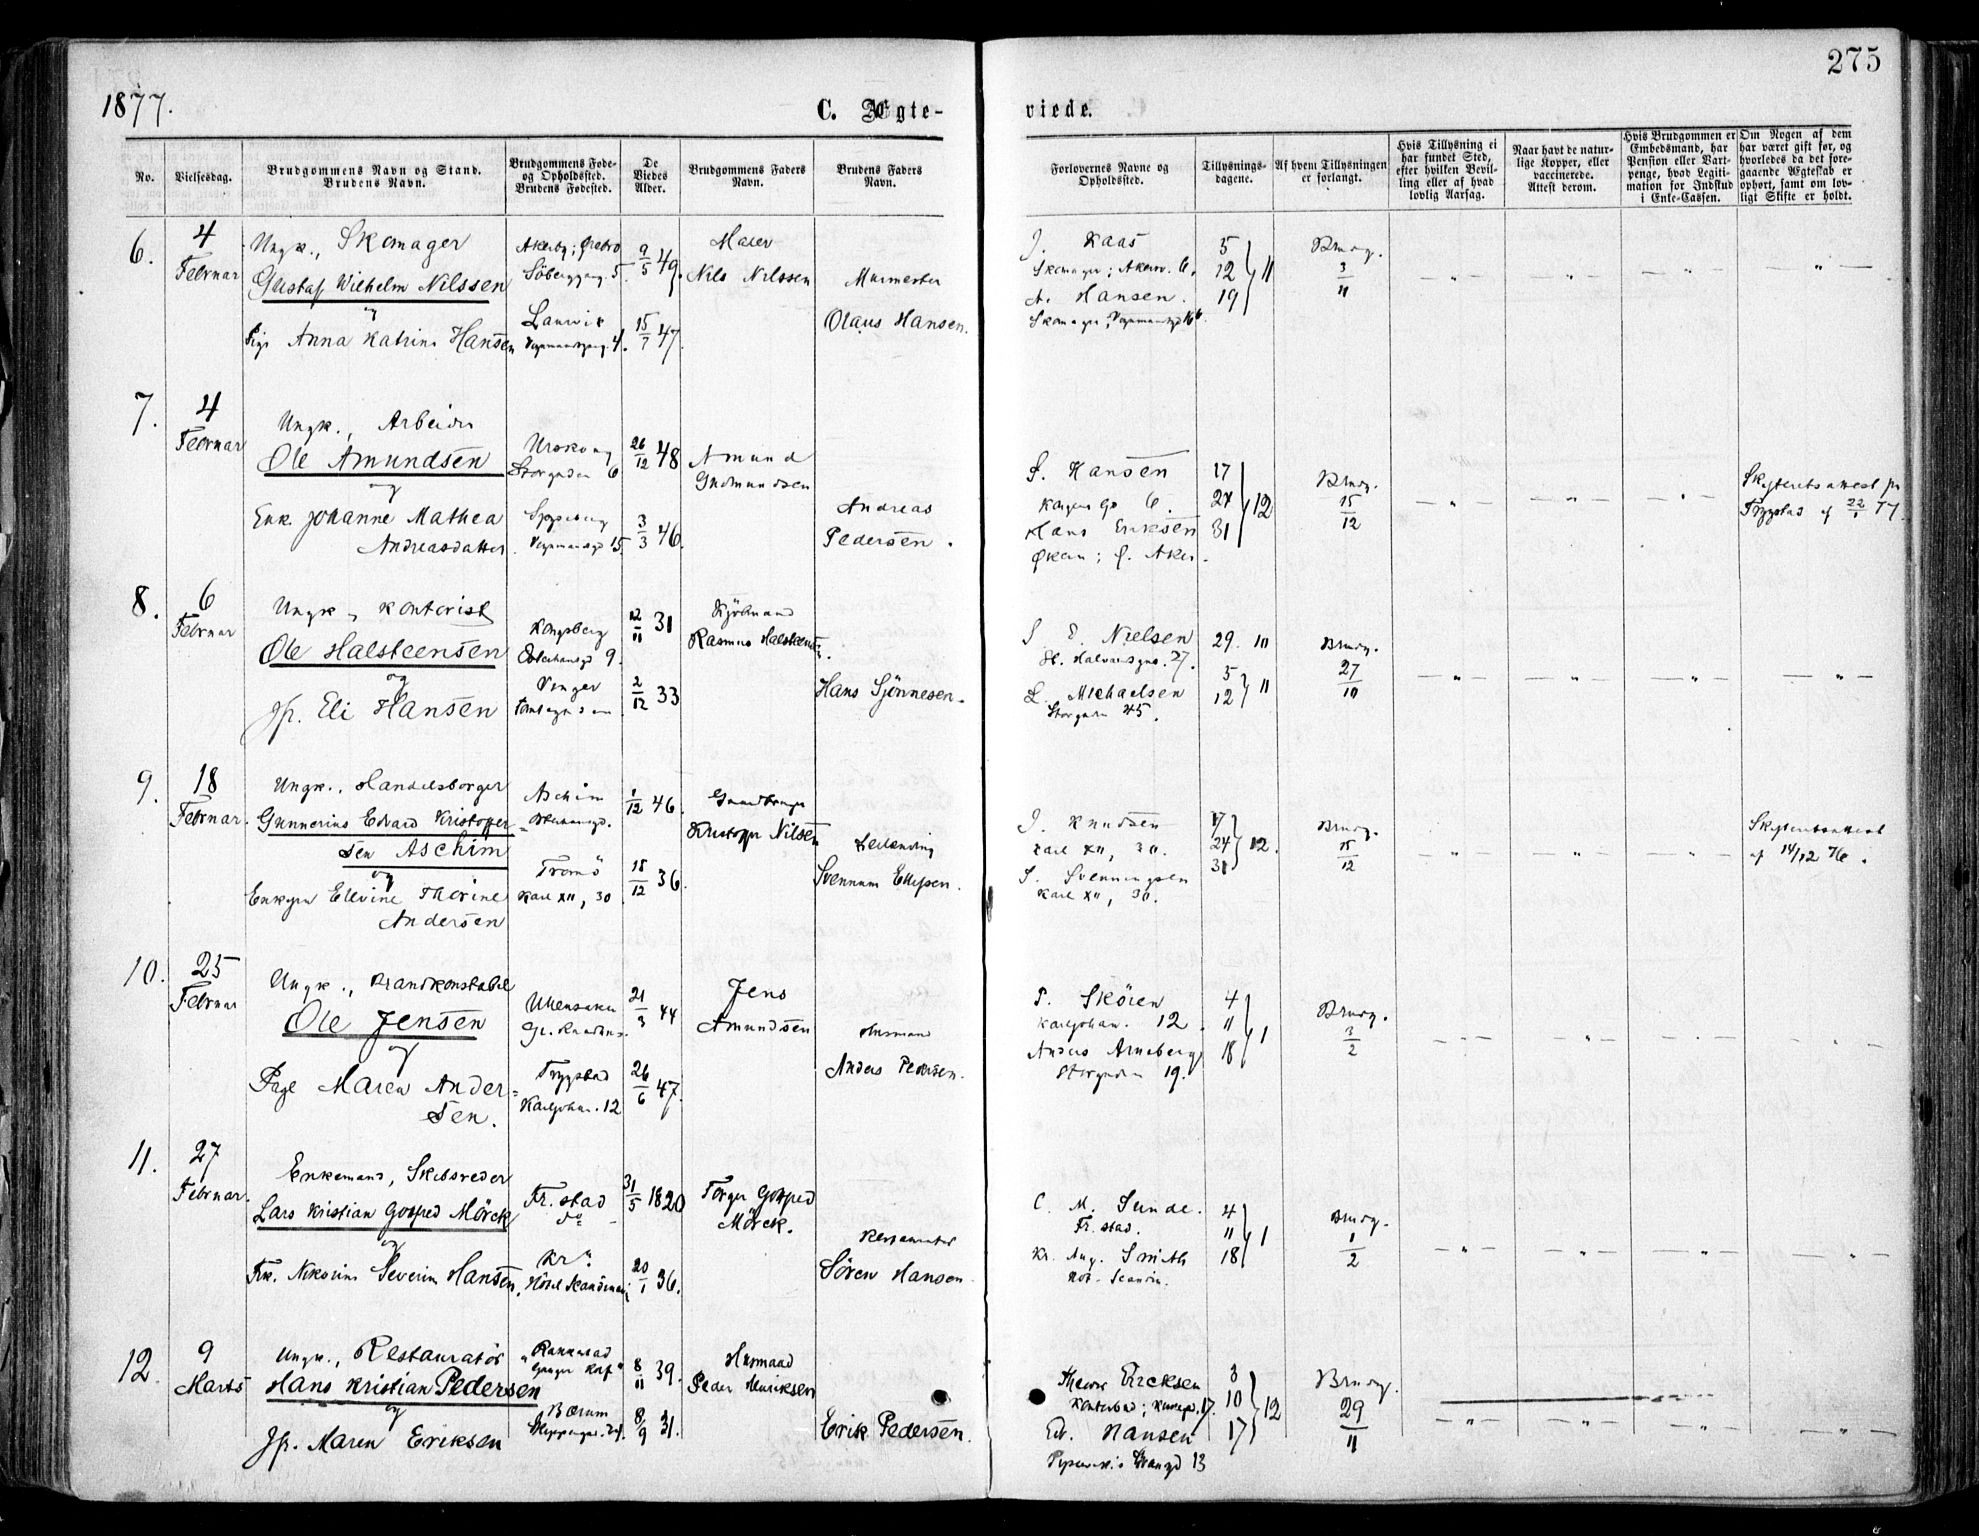 275
1877.
C. Ægte-
viede.
No.
Vielsesdag.
Brudgommens Navn og Stand.
Brudens Navn.
Brudgommens Føde-
og Opholdssted.
Brudens Fødested.
De
Viedes
Alder.
Brudgommens Faders
Navn.
Brudens Faders
Navn.
Forlovernes Navne og
Opholdssted.
Tillysnings-
dagene.
Af hvem Tillysningen
er forlangt.
Hvis Tillysning ei
har fundet Sted,
efter hvilken Bevil-
ling eller af hvad
lovlig Aarsag.
Naar havt de natur-
lige Kopper, eller
vaccinerede.
Attest derom.
Hvis Brudgommen er
Embedsmand, har
Pension eller Vart-
penge, hvad Legiti-
mation for Indskud
i Enke-Cassen.
Om Nogen af dem
har været gift før, og
hvorledes da det fore-
gaaende Ægteskab er
ophørt, samt om lov-
ligt Skifte er holdt.
6.
4
Februar
Ungk., Skomager
Gustaf Wilhelm Nilssen
og
Pige Anna Katrine Hansen
Akerby; Örebro
Söberggang. 5.
Laurvik
4.
9/5 49.
15/7 47.
Maler
Nils Nilssen
Murmester
Olaus Hansen.
J. Kaas
Skomager; Akersv. 6.
A. Hansen.
Skomager,
5
12 } 11
19
Brudg.
3
11
7.
4
Februar
Ungk., Arbeider
Ole Amundsen
og
Enk. Johanne Mathea
Andreasdatter
Urskoug
Storgaden 6
15
26/12 48
3/3 46.
Amund
Gudmundsen
Andreas
Pedersen.
S. Hansen
6.
Hans Eriksen
Økern; Ø. Aker.
17
24 } 12
31
Brudg.
15
12
Skifteretsattest fra
Trygstad af 22/1 77.
8.
6
Februar
Ungk., Kontorist
Ole Halsteensen
og
Jfr. Eli Hansen
Kongsberg
9.
Vinger
12/11 31
2/12 33
Kjöbmand
Rasmus Halsteensen.
Hans Sjönnesen.
S E. Nielsen
St. Halvardsgad. 27.
L. Michaelsen
Storgaden 45.
29. 10
5
12 } 11
Brudg.
27
10
9.
18
Februar.
Ungk., Handelsborger
Gunnerius Edvard Kristoffer-
sen Aschim
og
Enkefru Ellevine Thorine
Andersen
Aschim
Tromö
Karl XII, 30.
1/12 46.
15/12 36.
Gaardbruger
Kristoffer Nilsen
Svennum Ellefsen.
J. Knudsen
Karl XII, 30.
S. Svenningsen
Karl XII, 30.
17
24 } 12.
31
Brudg.
15
12
Skifteretsattest
af 14/12 76.
10.
25
Februar
Ungk., Brandkonstabel
Ole Jensen
og
Pige Maren Ander-
sen.
Ullensaker
Trygstad
Karljohan. 12
21/3 44
26/6 47.
Jens
Amundsen
Husmand
Anders Pedersen.
P. Skören
Karljohan. 12.
Anders Arneberg
Storgaden 19.
4
11 } 1
18
Brudg.
3
2
11.
27
Februar.
Enkemand, Skibsreder
Lars Kristian Gotfred Mörck
og
Frk. Nikoline Severine Hansen.
Fr. stad
do
Kr.a
Hôtel Skandinavie
31/5 1820
20/1 36.
Torger Gotfred
Mörck.
Sören Hansen.
C. M. Sunde.
Fr. stad.
Kr. Aug. Smith
Hot. Scandin.
4
11 } 1
18
Brudg.
1
2
12.
9
Marts
Ungk., Restauratör
Hans Kristian Pedersen
og
Jfr. Maren Eriksen
Bærum
24.
8/11 39.
8/9 31.
Husmand
Peder Henriksen
Erik Pedersen.
Ericksen
17.
Ed. Hansen
13
3
10 } 12
17
Brudg.
29
11